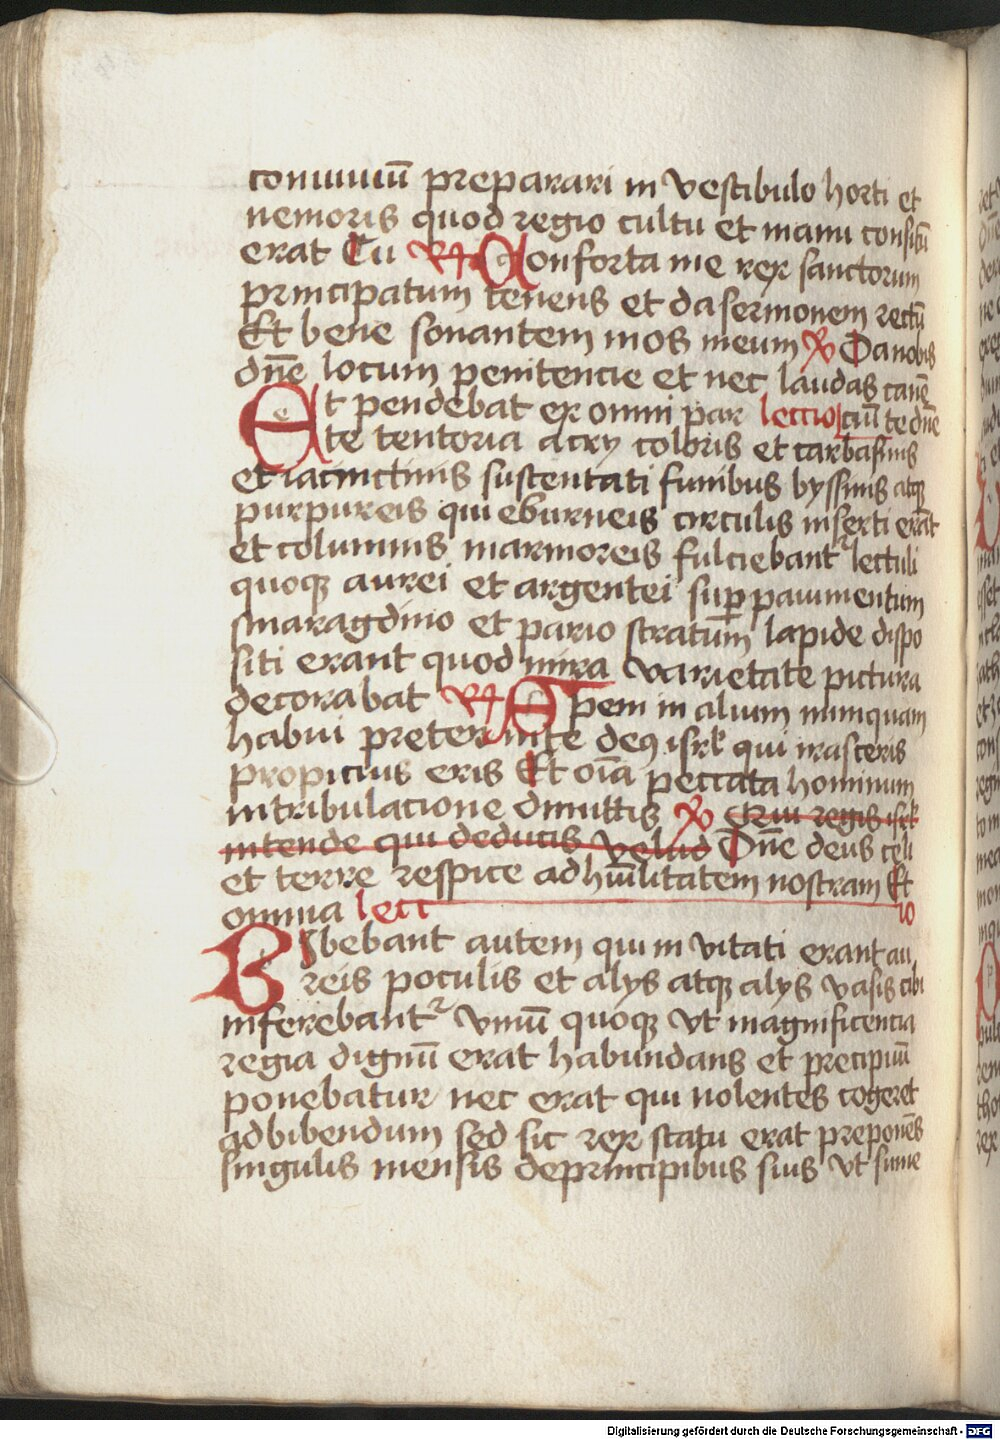 conuiuiū preparari in vestibulo horti et
nemoris quod regio cultu et manu consitū
erat Tu R Conforta me rex sanctorum
principatum tenens et da sermonem rectū
Et bene sonantem inos meum V Da nobis
dn̄e locum penitencie et nec laudas canē
Et pendebat ex omni par leccio ciū te dn̄e
te tentoria aery coloris et carbasinis
et iacinctinis sustentati funibus byssinis atq
purpureis qui eburneis circulis inserti erāt
et columnis marmoreis fulciebant lectuli
quoq aurei et argentei sup pauimentum
smaragdino et pario stratum lapide dispo
siti erant quod mira varietate pictura
decorabat R Spem in alium nunquam
habui preter in te deus isrl qui irasceris
propicius eris Et oīa peccata hominum
intribulacione dimittis V Qui regis isrl
intende qui deducis velud Dn̄e deus celi
et terre respice ad hūilitatem nostram Et
omnia lecc io
Bibebant autem qui in vitati erant au
reis poculis et alys atq alys vasis cibi
inferebant vinū quoq vt magnificencia
regia dignū erat habundans et precipuū
ponebatur nec erat qui nolentes cogeret
ad bibendum sed sic rex statu erat preponēs
singulis mensis de principibus suis vt sume
Digitalisierung gefördert durch die Deutsche Forschungsgemeinschaft - DFG